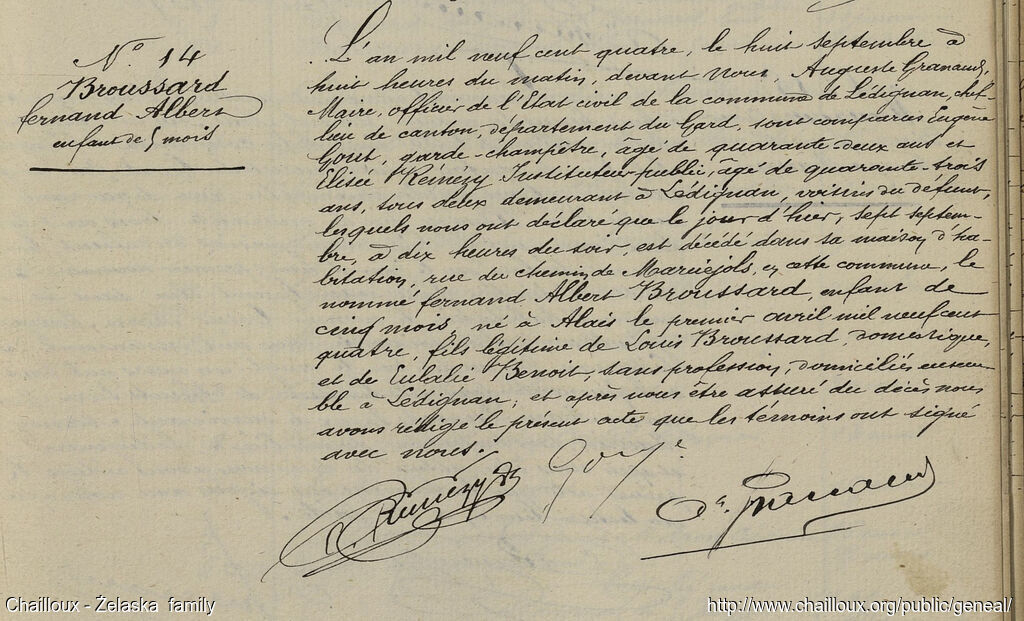 N.° 14
Broussard
fernand Albert
enfant de 5 mois
L'an mil neuf cent quatre, le huit septembre à
huit heures du matin, devant Nous, Auguste Granaud,
Maire, officier de l'Etat civil de la commune de Lédignan, chef-
lieu de canton, département du Gard, sont comparus Eugène
Gout, garde-champêtre, âgé de quarante deux ans et
Elisée Reinézy Instituteur public, âgé de quarante-trois
ans, tous deux demeurant à Lédignan, voisins du défunt,
lesquels nous ont déclaré que le jour d'hier, sept septem-
bre, à dix heures du soir, est décédé dans sa maison d'ha-
bitation, rue du chemin de Maruéjols, en cette commune, le
nommé fernand Albert Broussard, enfant de
cinq mois, né à Alais le premier avril mil neuf cent
quatre, fils légitime de Louis Broussard, domestique,
et de Eulalie Benoit, sans profession, domiciliés ensem-
ble à Lédignan; et après nous être assuré du décès nous
avons rédigé le présent acte que les témoins ont signé
avec nous.
Chailloux - Żelaska family
http://www.chailloux.org/public/geneal/